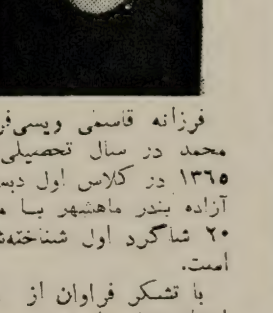 فرزانه قاسمی ویسی‌فر
محمد در سال تحصیلی
۱۳۶۵ در کلاس اول
آزاده بندر ماهشهر با
۲۰ شاگرد اول
است.
با تشکر فراوان از